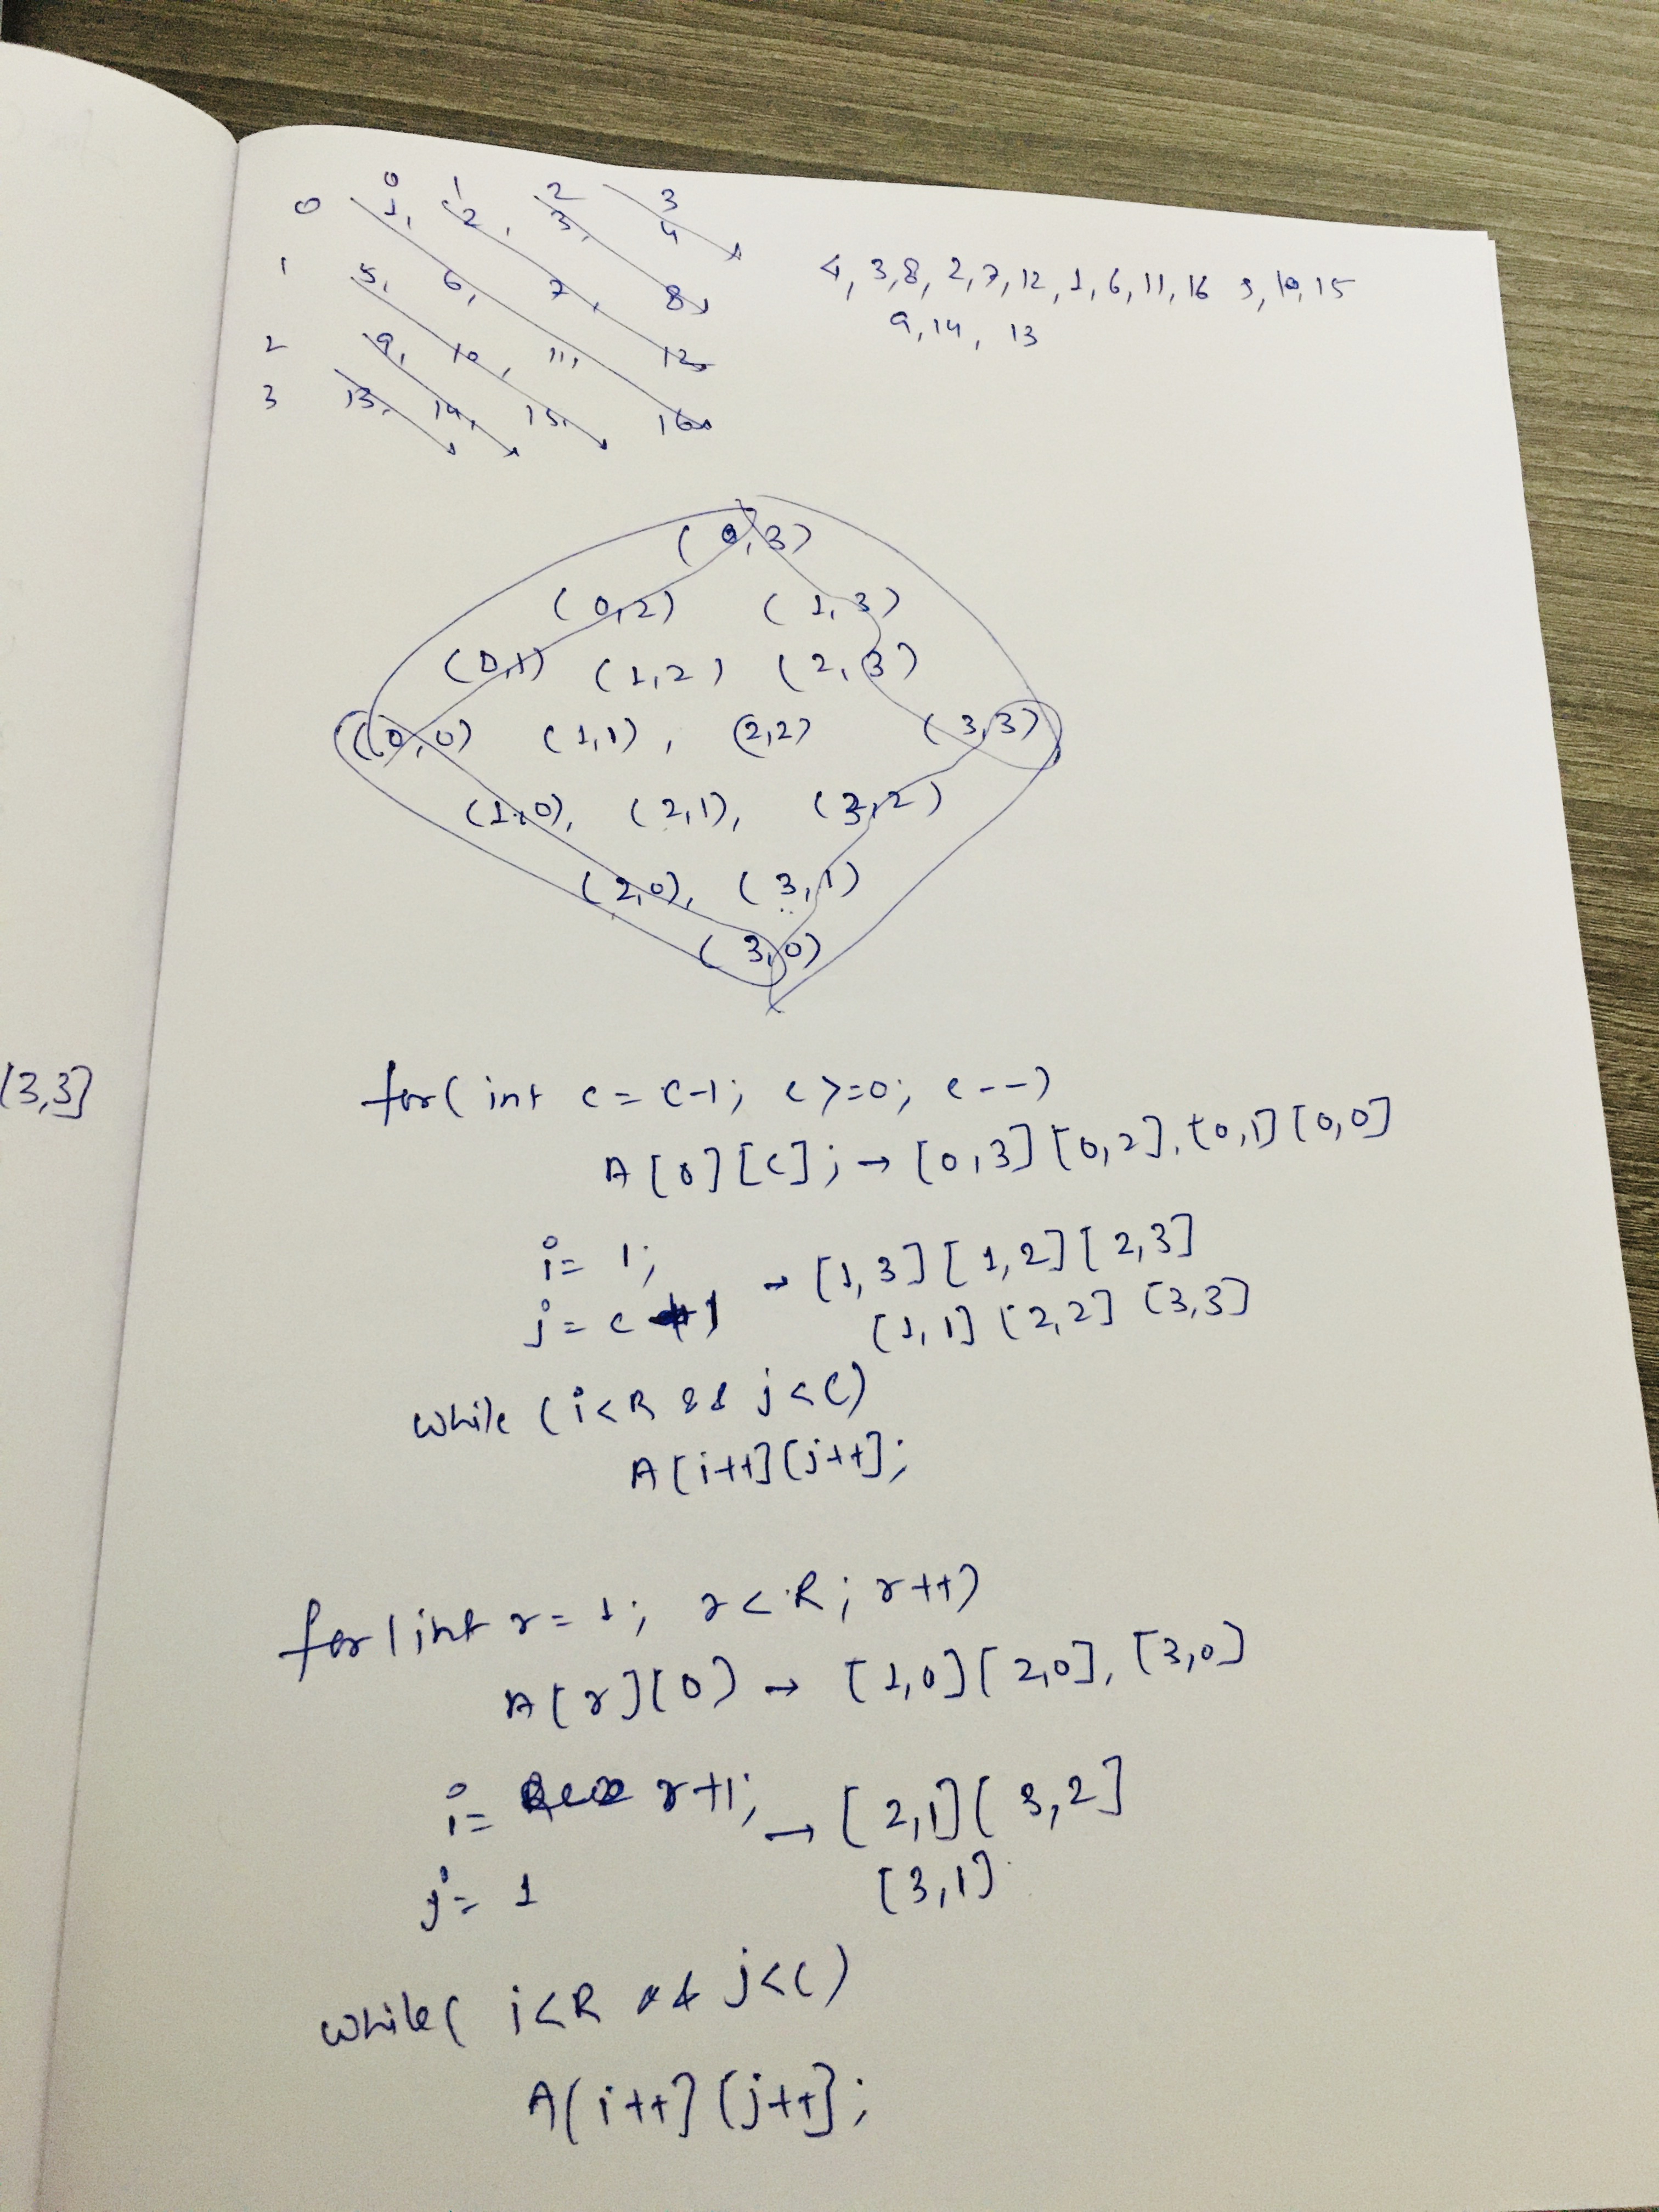 0 1 2 3
0 1, 2, 3, 4
1 5, 6, 7, 8
2 9, 10, 11, 12
3 13, 14, 15, 16
4, 3, 8, 2, 7, 12, 1, 6, 11, 16 5, 10, 15
9, 14, 13
(0,3)
(0,2) (1,3)
(0,1) (1,2) (2,3)
(0,0) (1,1), (2,2) (3,3)
(1,0), (2,1), (3,2)
(2,0), (3,1)
(3,0)
(3,3]
for( int c = C-1; c>=0; c--)
A[0][c]; → [0,3] [0,2], [0,1] [0,0]
i = 1; → [1,3] [1,2] [2,3]
j = c+1 [1,1] [2,2] [3,3]
while (i<R && j<C)
A[i++][j++];
for(int r = 1; r<R; r++)
A[r][0) → [1,0][2,0], [3,0]
i = r+1; → [2,1][3,2]
j = 1 [3,1]
while( i<R && j<C)
A[i++][j++];